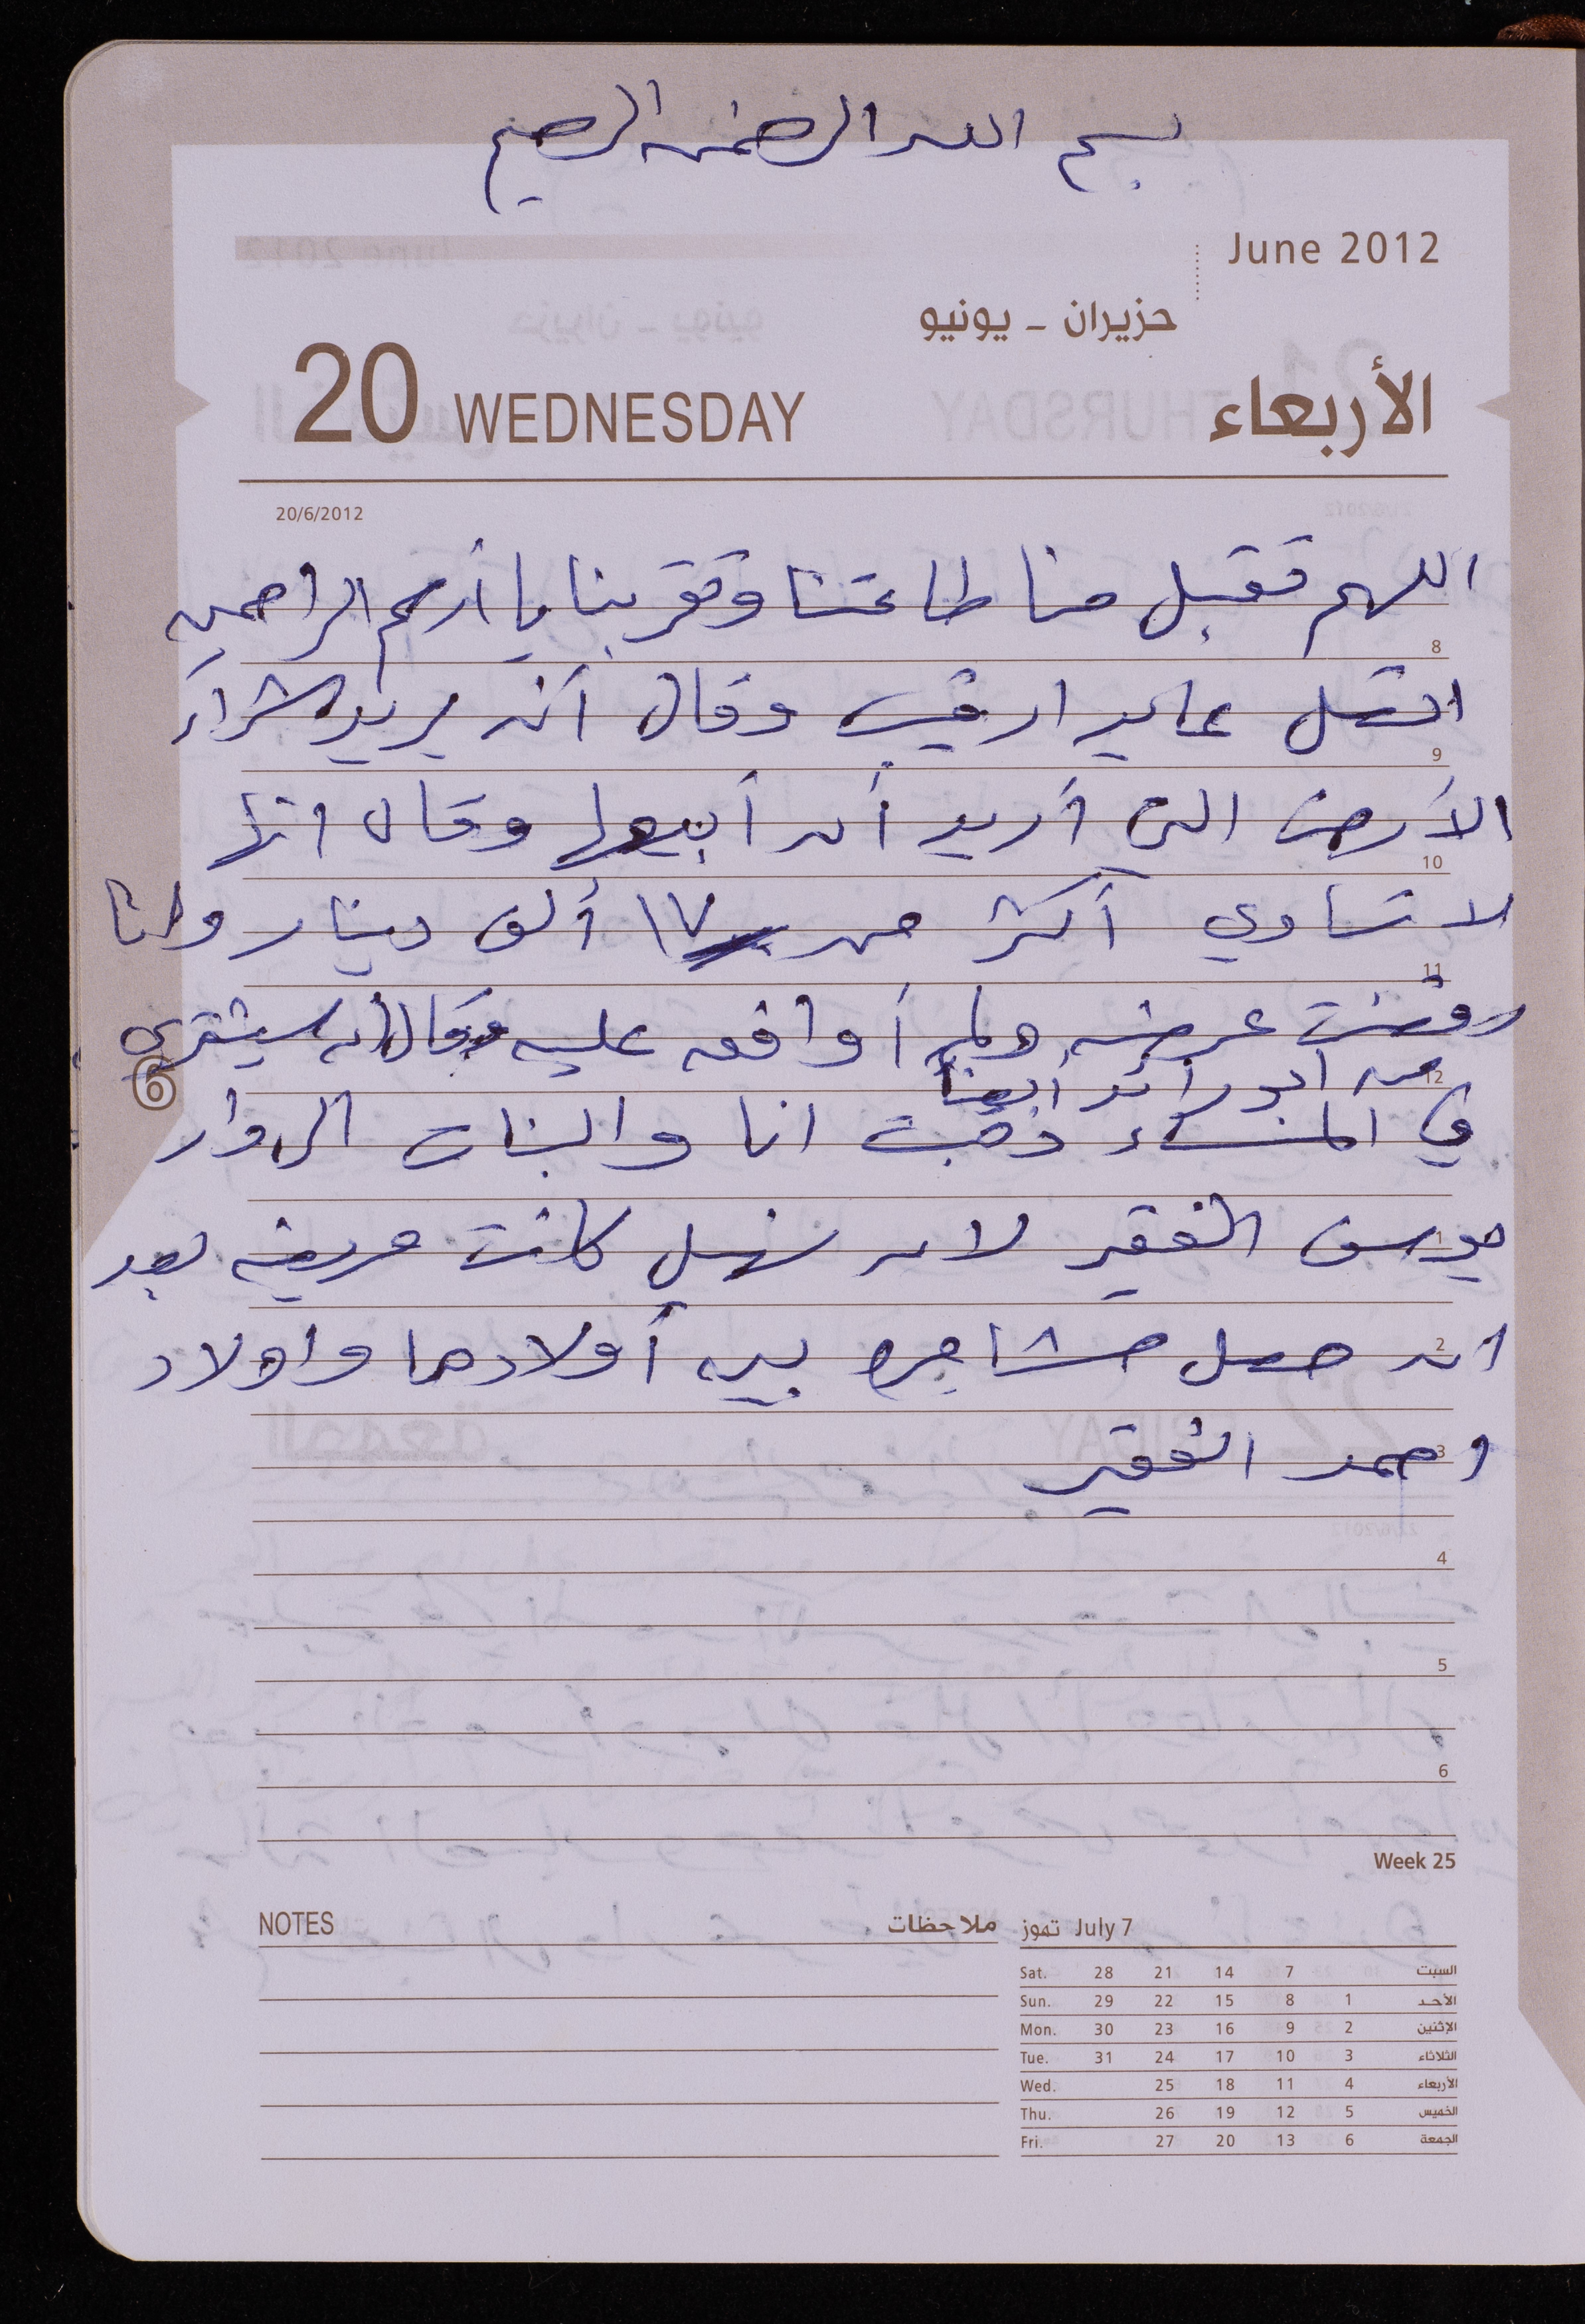 بسم الله الرحمن الرحيم
June 2012
حزيران - يونيو
20 WEDNESDAY الأربعاء
20/6/2012
اللهم تقبل منا طاعتنا وتقربنا يا أرحم الراحمين
8
اتصل عايد ارقيب وقال أنه يريد شراء
9
الأرض التي أريد أن أبيعها وقال انها
10
لا تساوي أكثر من ١٧ ألف دينار وانا
11
رفضت عرضه ولم أوافقه عليه وقال انه سيشتري
من ابو رائد أيضا
12
6
في المساء ذهبت انا والبنات الى دار
1
يوسف الفقير لان نهيل كانت مريضه بعد
2
ان حصل مشاجره بين أولادها واولاد
3
احمد الفقير
4
5
6
Week 25
NOTES ملاحظات
تموز July 7
Sat. 28 21 14 7 السبت
Sun. 29 22 15 8 1 الأحد
Mon. 30 23 16 9 2 الإثنين
Tue. 31 24 17 10 3 الثلاثاء
Wed. 25 18 11 4 الأربعاء
Thu. 26 19 12 5 الخميس
Fri. 27 20 13 6 الجمعة